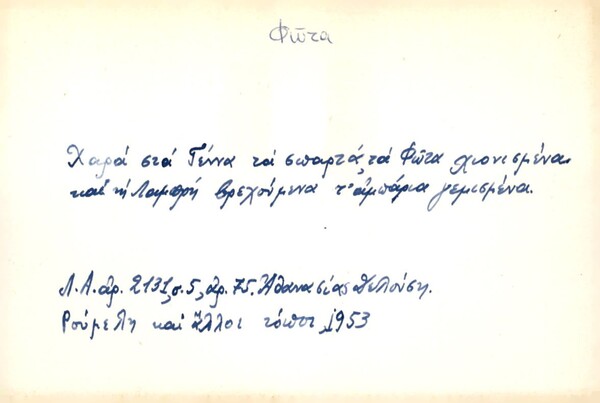 Φῶτα
Χαρά στά Γέννα τά σπαρτά, τά Φῶτα χιονισμένα
καί τή Λαμπρή βρεχούμενα τ' ἀμπάρια γεμισμένα.
Λ.Α. ἀρ. 2131, σ. 5, ἀρ. 75. Ἀθανασίας Πελούση.
Ρούμελη καί ἄλλοι τόποι, 1953